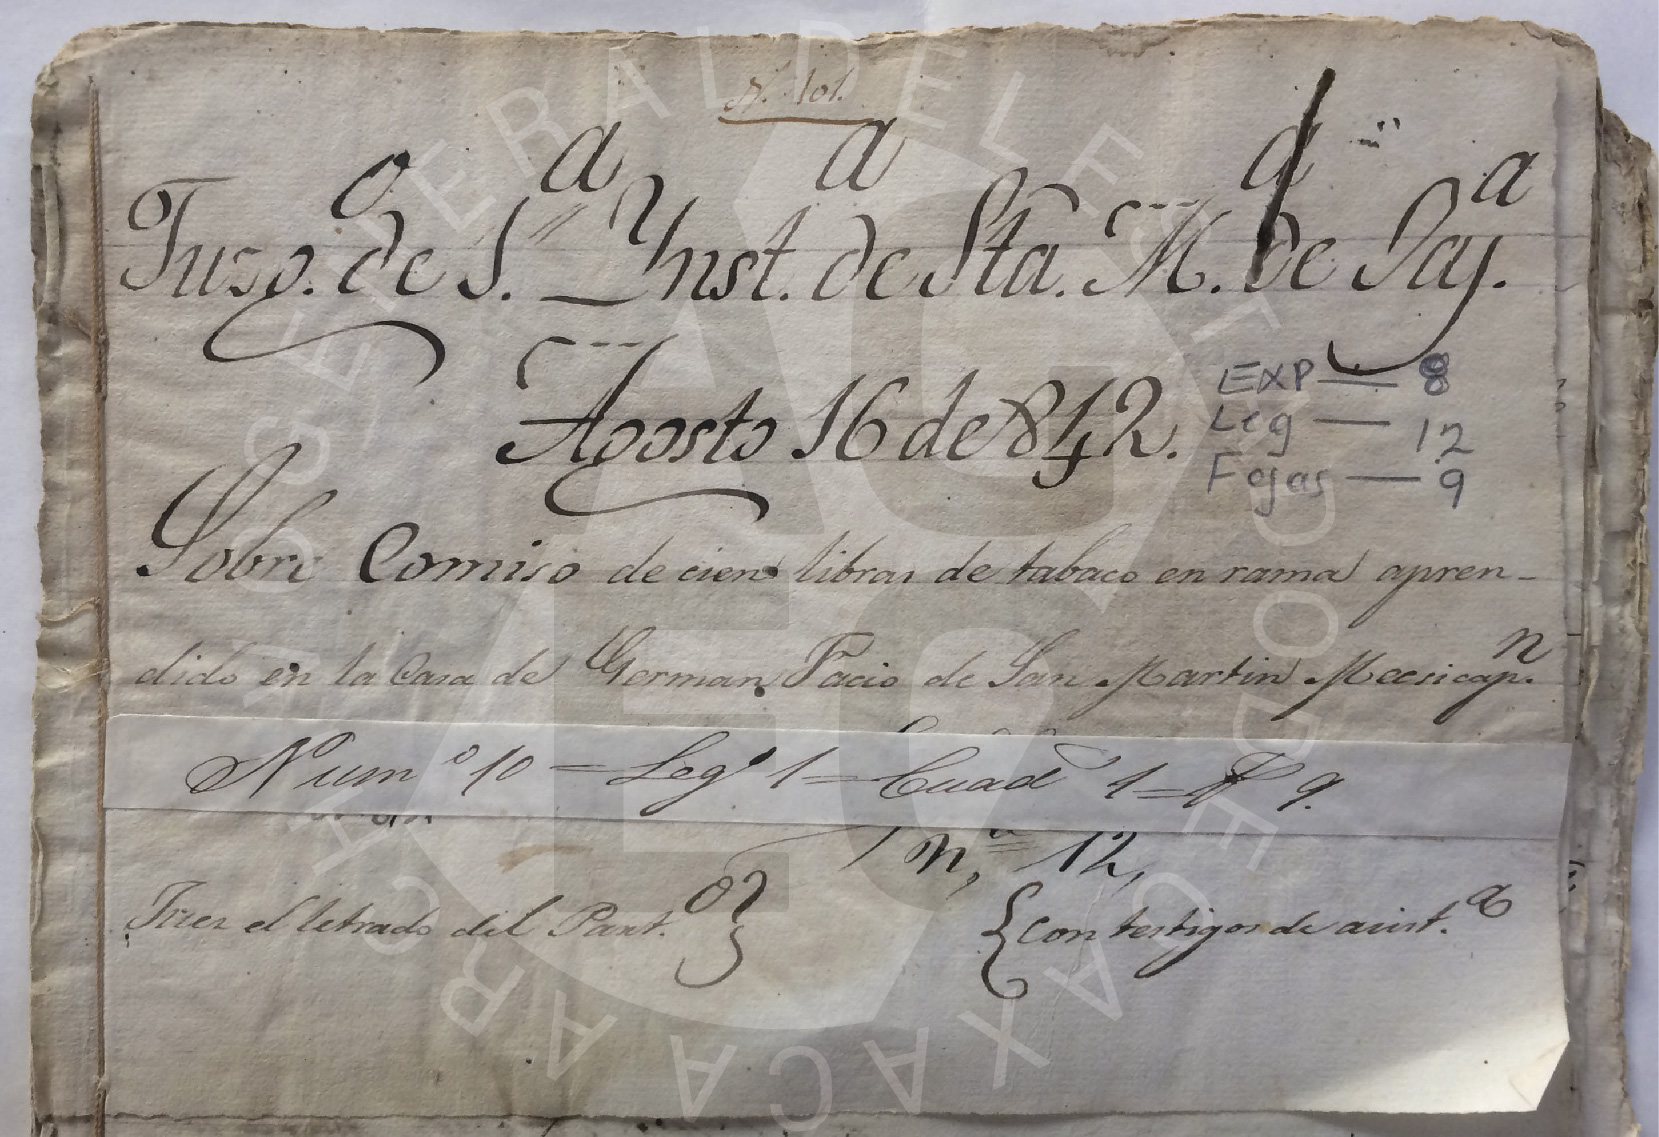 N. 101.
Jusgo. de 1.a Ynsta. de Sta. M.a de Oaja.
Agosto 16 de 842.
EXP — 8
Leg — 12
Fojas — 9
Sobre Comiso de cien libras de tabaco en rama apren-
dido en la Casa de German Facio de San Martin Mecsicapn.
Numo 10 = Lego 1 = Cuad 1 = F 9.
na 12,
Juez el letrado del Parto. } { con testigos de asista.
ARCHIVO GENERAL DEL ESTADO DE OAXACA
AGEO